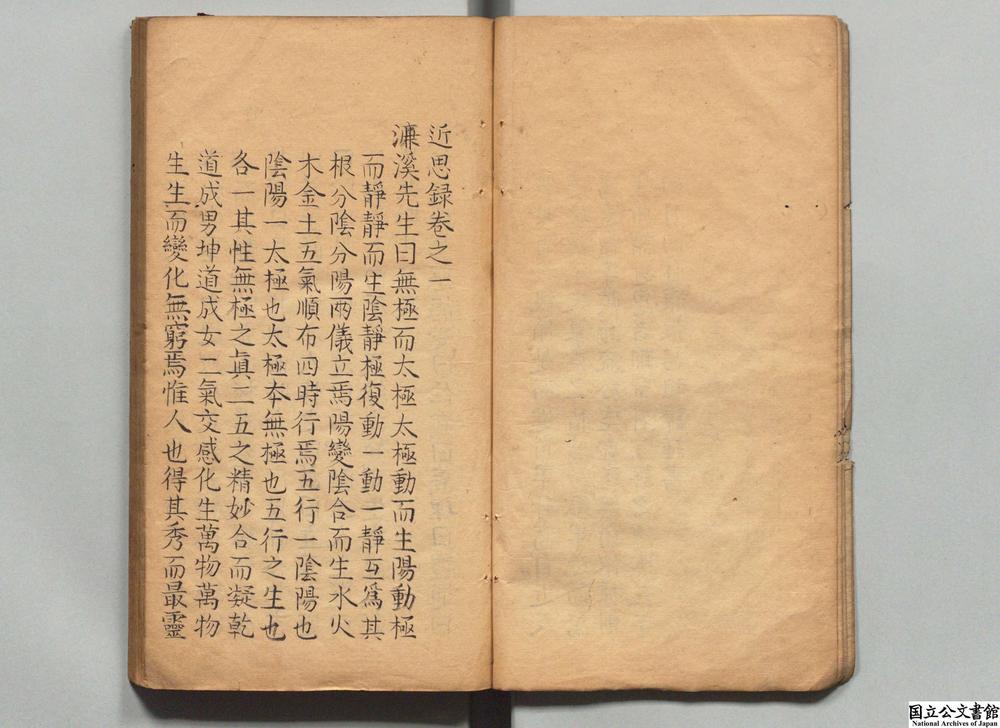 近思録巻之一
濂溪先生曰無極而太極太極動而生陽動極
而靜靜而生陰靜極復動一動一靜互爲其
根分陰分陽兩儀立焉陽變陰合而生水火
木金土五氣順布四時行焉五行一陰陽也
陰陽一太極也太極本無極也五行之生也
各一其性無極之眞二五之精妙合而凝乾
道成男坤道成女二氣交感化生萬物萬物
生生而變化無窮焉惟人也得其秀而最靈
国立公文書館
National Archives of Japan